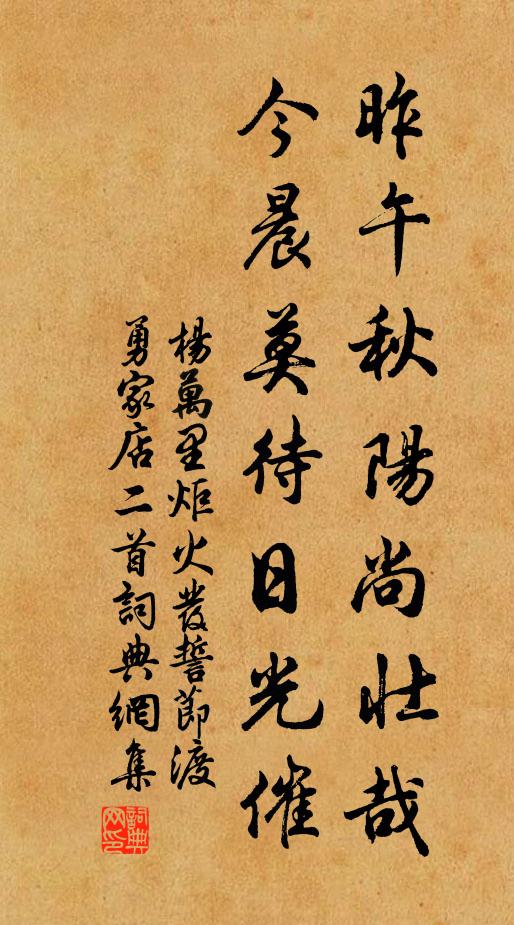 昨午秋陽尚壯哉
今晨莫待日光催
楊萬里炬火發誓節渡
勇家店二首詞典網集
詞典网印